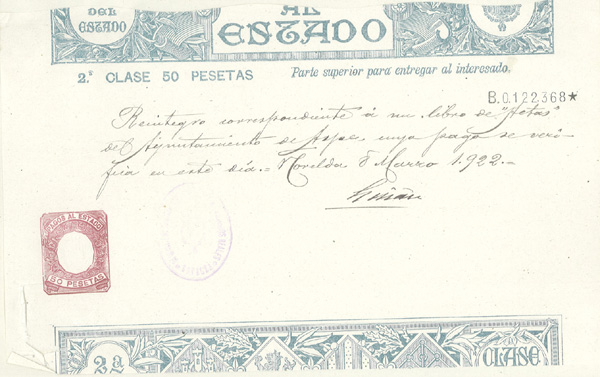 DEL
ESTADO
AL
ESTADO
2.ª CLASE 50 PESETAS
Parte superior para entregar al interesado.
B.0.122,368*
Reintegro correspondiente á un libro de "Actas"
de Ayuntamiento de Aspe, cuyo pago se veri-
fica en este día.= Novelda 8 Marzo 1.922.-
PAGOS AL ESTADO
50 PESETAS
2ª
CLASE